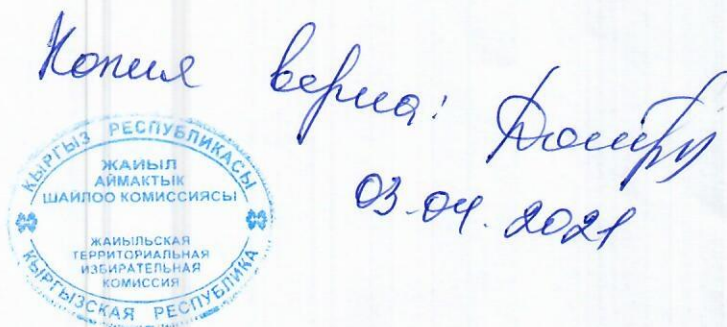 Копия верна:
03.04.2021
КЫРГЫЗ РЕСПУБЛИКАСЫ
ЖАЙЫЛ
АЙМАКТЫК
ШАЙЛОО КОМИССИЯСЫ
ЖАЙЫЛЬСКАЯ
ТЕРРИТОРИАЛЬНАЯ
ИЗБИРАТЕЛЬНАЯ
КОМИССИЯ
КЫРГЫЗСКАЯ РЕСПУБЛИКА